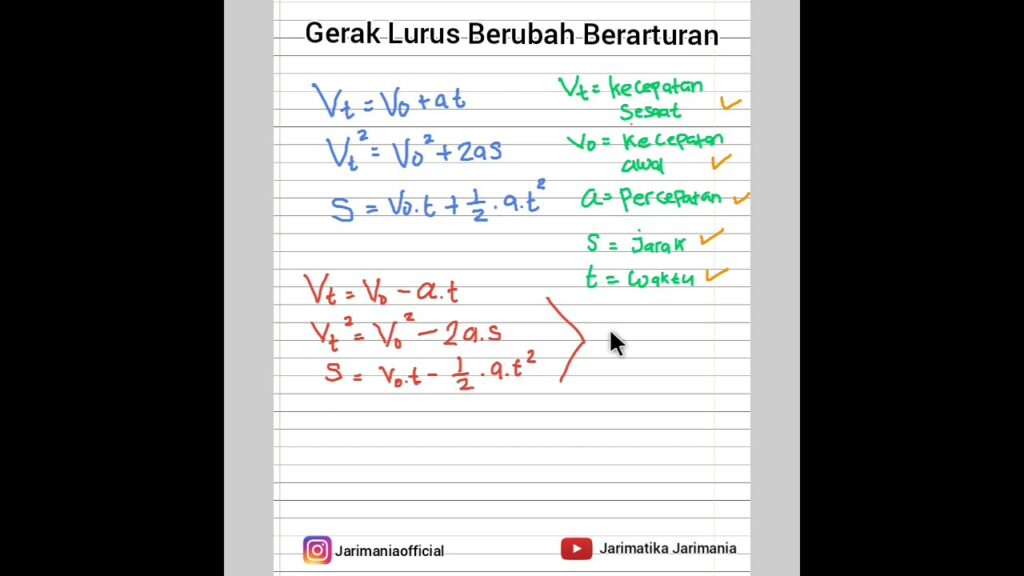 Gerak Lurus Berubah Berarturan
Vt = V0 + at
Vt² = V0² + 2as
S = V0.t + 1/2 . a.t²
Vt = kecepatan
Sesaat
V0 = Kecepatan
awal
a = Percepatan
S = Jarak
t = Waktu
Vt = V0 - a.t
Vt² = V0² - 2a.s
S = V0.t - 1/2 . a.t²
Jarimaniaofficial
Jarimatika Jarimania